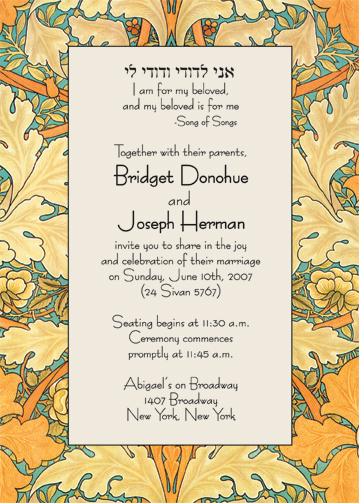 אני לדודי ודודי לי
I am for my beloved,
and my beloved is for me
-Song of Songs
Together with their parents,
Bridget Donohue
and
Joseph Herman
invite you to share in the joy
and celebration of their marriage
on Sunday, June 10th, 2007
(24 Sivan 5767)
Seating begins at 11:30 a.m.
Ceremony commences
promptly at 11:45 a.m.
Abigael's on Broadway
1407 Broadway
New York, New York